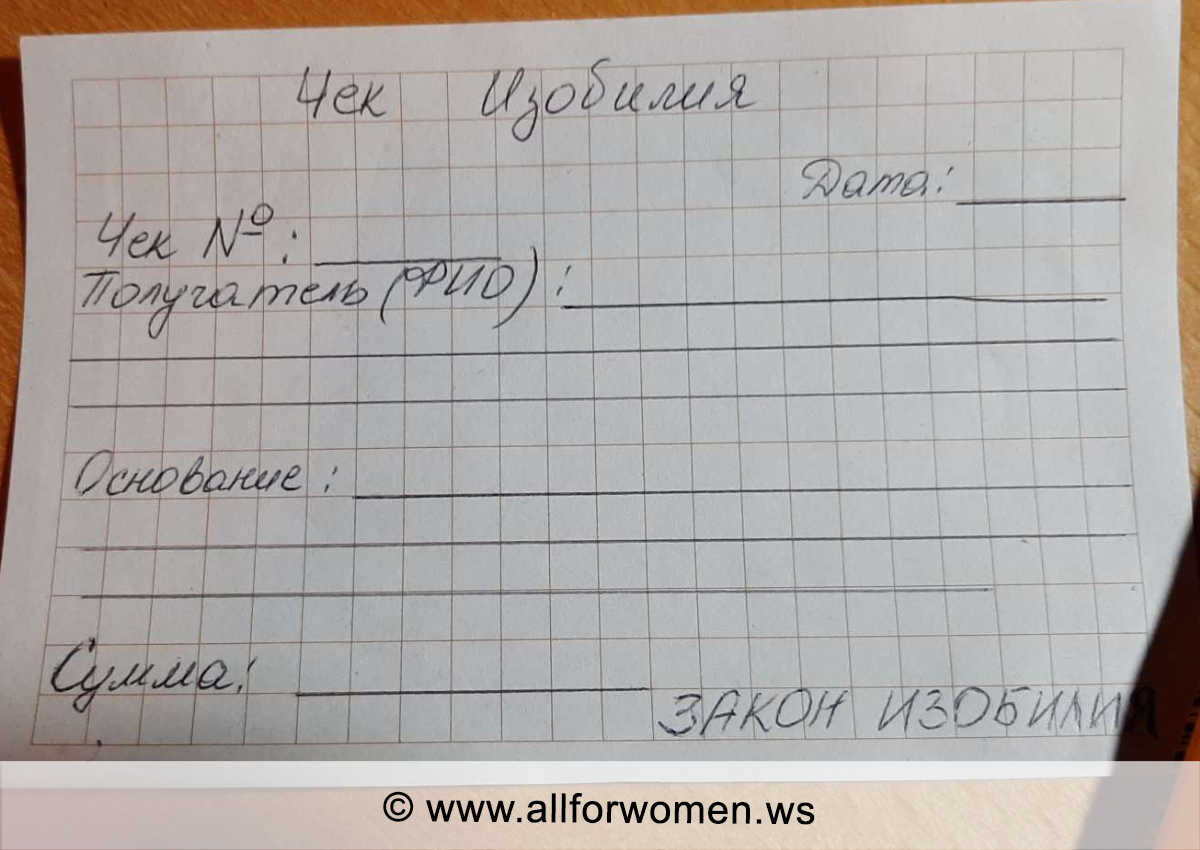 Чек Изобилия
Дата: ________
Чек №: ________
Получатель (ФИО): ________
Основание: ________
Сумма: ________
ЗАКОН ИЗОБИЛИЯ
© www.allforwomen.ws